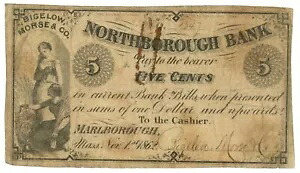 BIGELOW,
MORSE & CO.
NORTHBOROUGH BANK
Pay to the bearer
5 FIVE CENTS 5
in current Bank Bills, when presented
in sums of one Dollar and upwards
To the Cashier.
MARLBOROUGH,
Mass. Nov. 1st 1862. Bigelow Morse & Co